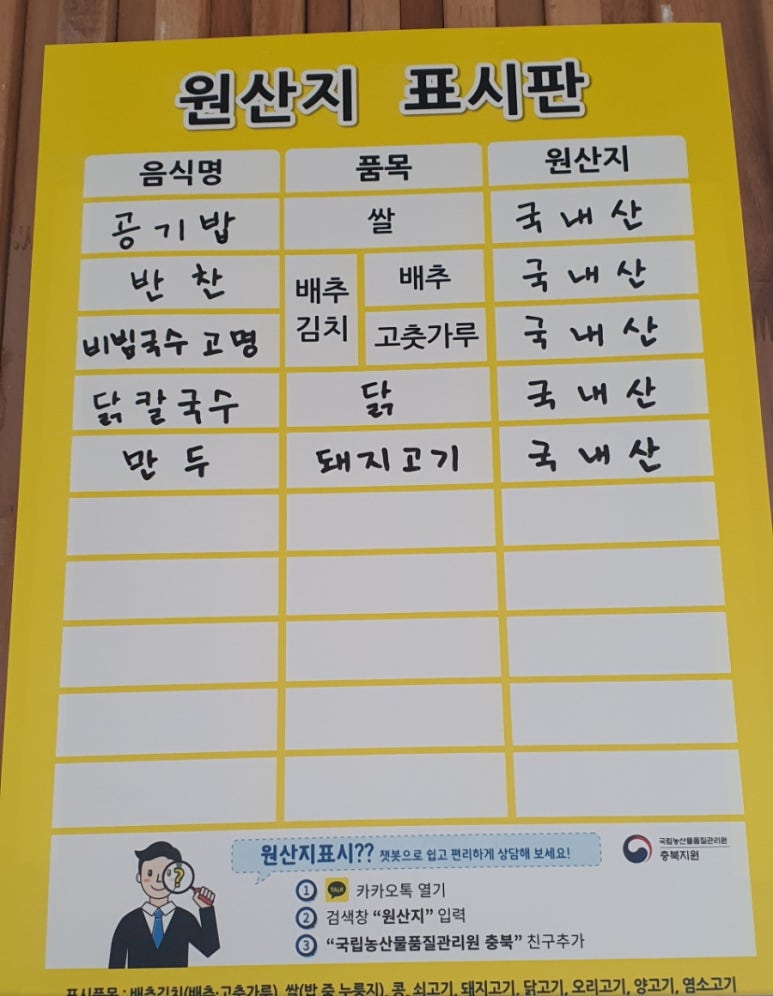 원산지 표시판
음식명 품목 원산지
공기밥 쌀 국내산
반찬 배추김치 배추 국내산
비빔국수 고명 고춧가루 국내산
닭칼국수 닭 국내산
만두 돼지고기 국내산
원산지표시?? 챗봇으로 쉽고 편리하게 상담해 보세요!
국립농산물품질관리원
충북지원
1 TALK 카카오톡 열기
2 검색창 “원산지” 입력
3 “국립농산물품질관리원 충북” 친구추가
표시품목 : 배추김치(배추·고춧가루), 쌀(밥 죽 누룽지), 콩, 쇠고기, 돼지고기, 닭고기, 오리고기, 양고기, 염소고기